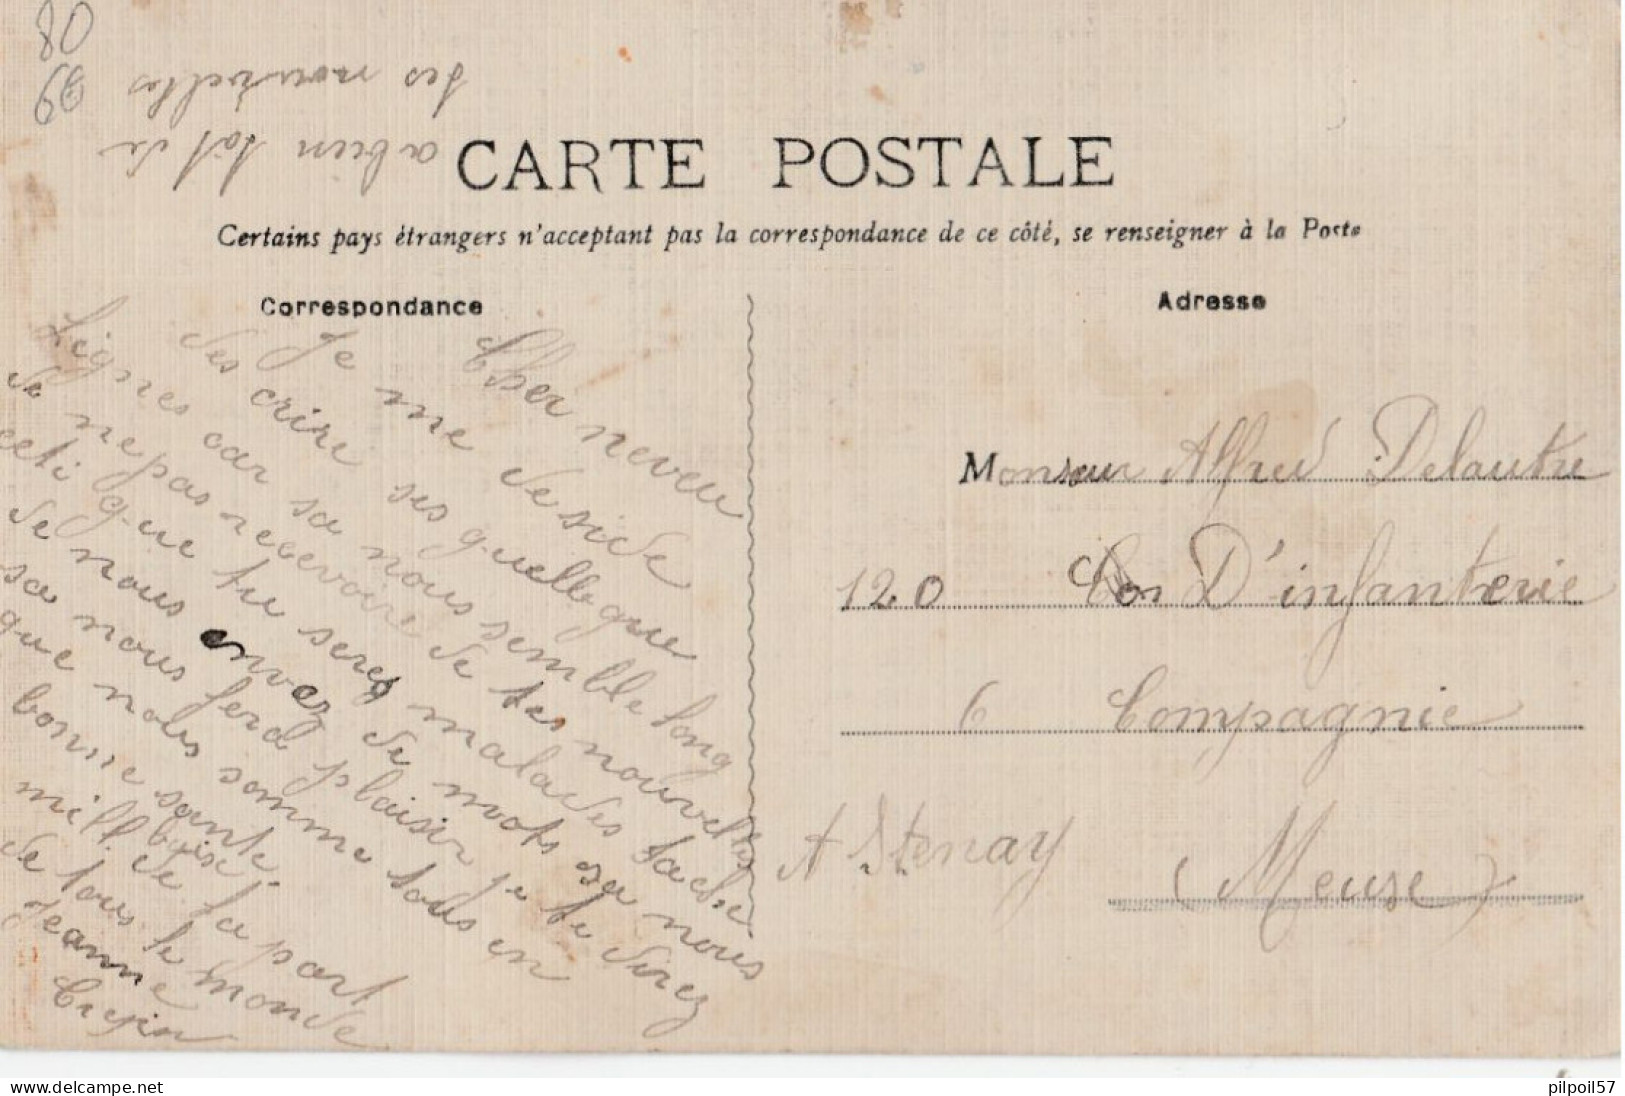 80
99
a bien tôt de
tes nouvelles
CARTE POSTALE
Certains pays étrangers n'acceptant pas la correspondance de ce côté, se renseigner à la Poste
Correspondance
Adresse
Cher neveu
Je me deside
des crire ses quelle que
Lignes car sa nous semble long
de ne pas recevoire de tes nouvelles
ceti que tu seres malades tache
de nous envez de mots sa nous
sa nous ferd plaisir je te direz
que nous somme tous en
bonne sante.
mill baise de la part
de tous le monde
Jeanne
Crepin
Monsieur Alfred Delautre
120 D'infanterie
6 Compagnie
A Stenay
(Meuse)
www.delcampe.net
pilpoil57